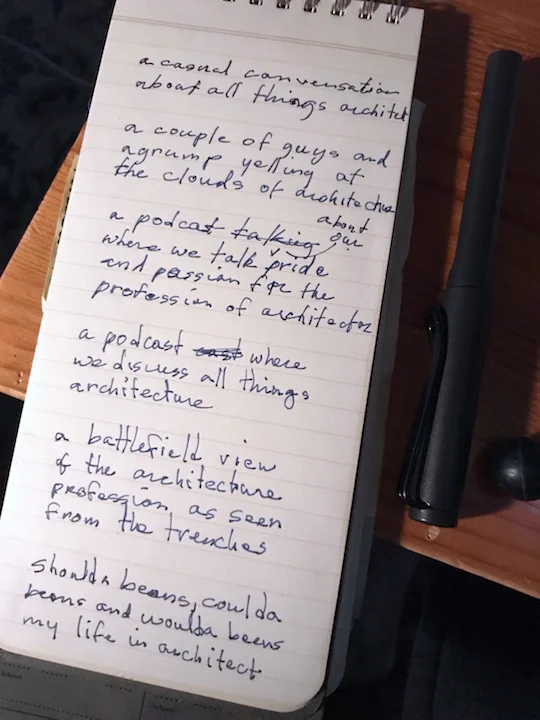 a casual conversation
about all things architect
a couple of guys and
a grump yelling at
the clouds of architecture
about
a podcast talking our
where we talk pride
and passion for the
profession of architecture
a podcast cast where
we discuss all things
architecture
a battlefield view
of the architecture
profession as seen
from the trenches
shoulda beens, coulda
beens and woulda beens
my life in architect